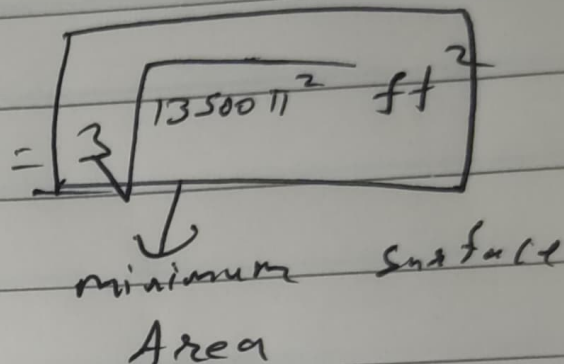 = ∛13500 π² ft²
minimum surface
Area